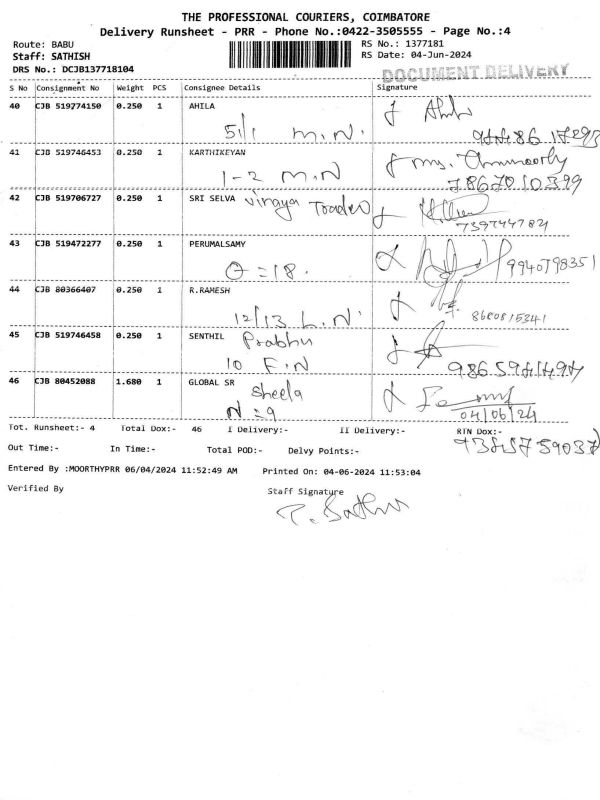 THE PROFESSIONAL COURIERS, COIMBATORE
Delivery Runsheet - PRR - Phone No.:0422-3505555 - Page No.:4
Route: BABU
RS No.: 1377181
Staff: SATHISH
RS Date: 04-Jun-2024
DRS No.: DCJB137718104
DOCUMENT DELIVERY
S No Consignment No Weight PCS Consignee Details Signature
40 CJB 519774150 0.250 1 AHILA
51/1 M.N.
41 CJB 519746453 0.250 1 KARTHIKEYAN
1-2 M.N
7867010399
42 CJB 519706727 0.250 1 SRI SELVA Vinaya Trader
43 CJB 519472277 0.250 1 PERUMALSAMY
9940798351
=18.
44 CJB 80366407 0.250 1 R.RAMESH
12/13 L.N.
8680815341
45 CJB 519746458 0.250 1 SENTHIL Prabhu
10 F.N
46 CJB 80452088 1.680 1 GLOBAL SR Sheela
N=9
04/06/24
Tot. Runsheet:- 4 Total Dox:- 46 I Delivery:- II Delivery:- RTN Dox:-
Out Time:- In Time:- Total POD:- Delvy Points:-
Entered By :MOORTHYPRR 06/04/2024 11:52:49 AM Printed On: 04-06-2024 11:53:04
Verified By Staff Signature